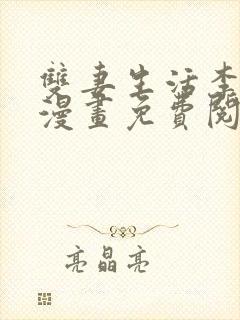 雙妻生活李
漫畫免費閱
亮晶亮